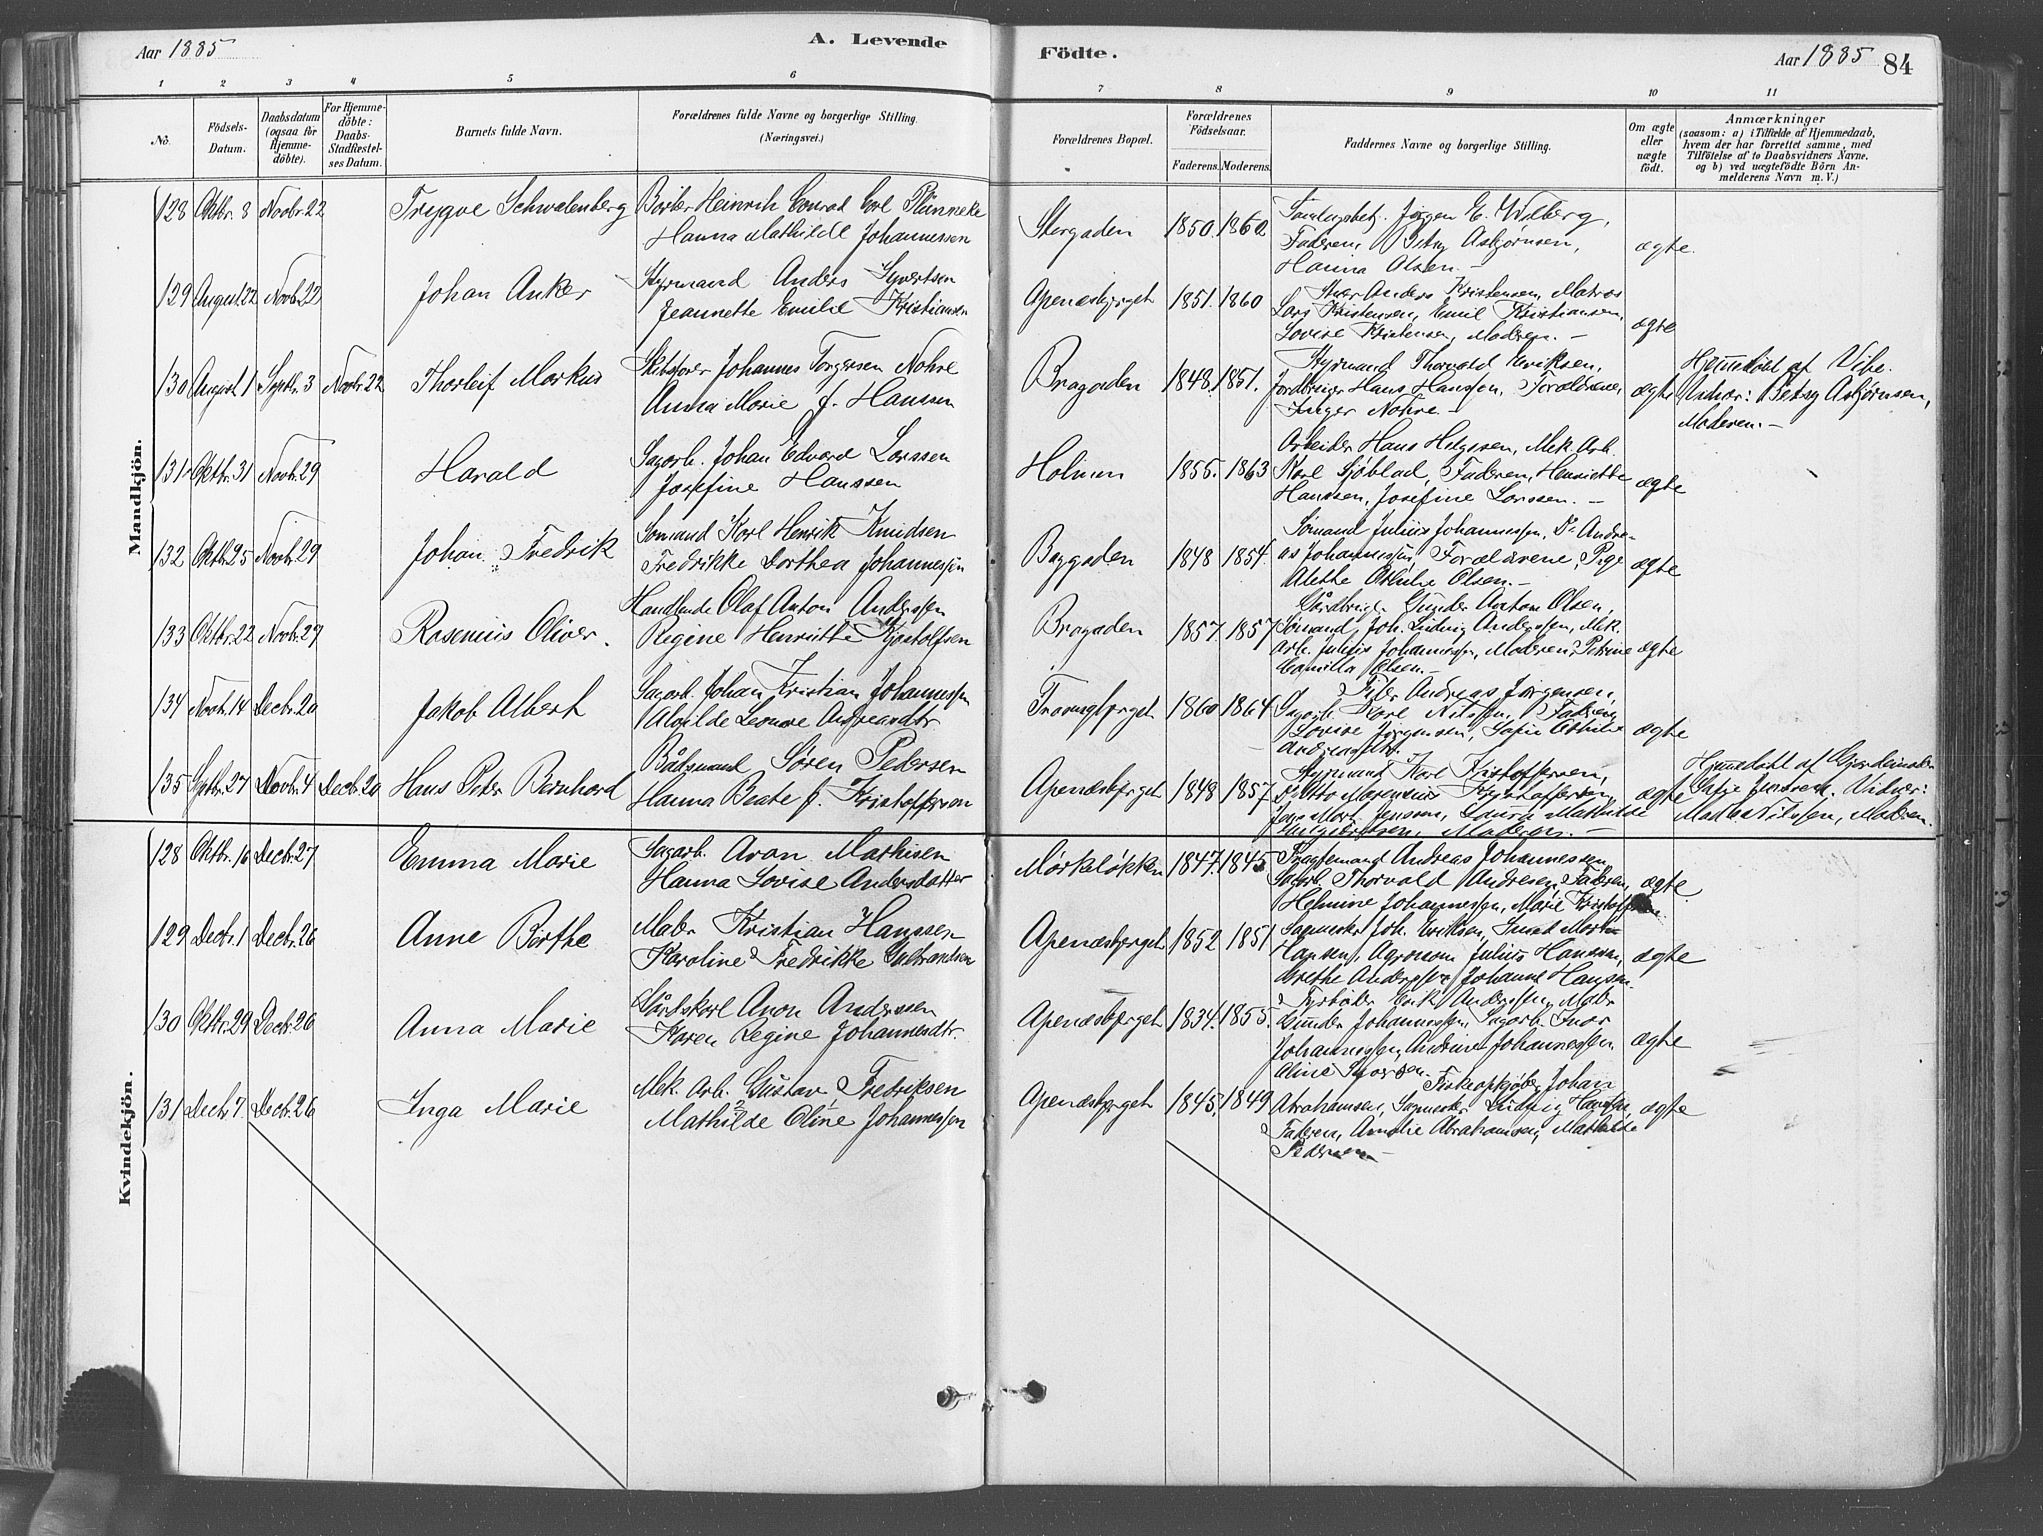 Aar 1885
A. Levende
Födte.
Aar 1885
84
1 2 3 4 5 6 7 8 9 10 11
No.
Födsels-
Datum.
Daabsdatum
(ogsaa for
Hjemme-
döbte).
For Hjemme-
döbte:
Daabs-
Stadfæstel-
ses Datum.
Barnets fulde Navn.
Forældrenes fulde Navne og borgerlige Stilling.
(Næringsvei.)
Forældrenes Bopæl.
Forældrenes
Födselsaar.
Faderens. Moderens.
Faddernes Navne og borgerlige Stilling.
Om ægte
eller
uægte
födt.
Anmærkninger
(saasom: a) i Tilfælde af Hjemmedaab,
hvem der har forrettet samme, med
Tilföielse af to Daabsvidners Navne.
og b) ved uægtefödte Börn An-
melderens Navn m. V.)
Mandkjön.
128 Oktbr. 8 Novbr. 22 Trygve Schwalenberg
Heinrich Conrad Carl Plünneke
Hanna Mathilde Johannessen
1850. 1860.
Jørgen E. Wilberg,
Faderen, Betsy Asbjørnsen,
Hanna Olsen. –
ægte.
129 August 22 Novbr. 22 Johan Anker
Styrmand Anders Syvertsen
Jeannette Emilie Kristiansen
Apenæsbjerget 1851. 1860
Anders Kristensen, Matros
Lars Kristensen, Emil Kristiansen,
Lovise Kristensen, Moderen. –
ægte
130 August 1 Septbr. 3 Novbr. 22 Thorleif Markus
Skibsfører Johannes Torgersen Nohre
Anna Marie f. Hanssen
Bragaden 1848. 1851.
Styrmand Thorvald Eriksen,
Hans Hanssen, Forældrene,
Inger Nohre –
ægte
Hjemmedøbt af Vibe.
Vidner: Betsy Asbjørnsen,
Moderen. –
131 Oktbr. 31 Novbr. 29 Harald
Sagarb. Johan Edvard Larssen
Josefine Hanssen
Holmen 1855. 1863
Arbeider Hans Helgesen, Mek. Arb.
Karl Sjöblad, Faderen, Henriette
Hanssen, Josefine Larssen. –
ægte
132 Oktbr. 25 Novbr. 29 Johan Fredrik
Sømand Karl Henrik Knudsen
Fredrikke Dorthea Johannessen
Baggaden 1848 1854.
Sømand Julius Johannessen, Do Andre-
as Johannessen, Forældrene, Pige
Alethe Othilie Olsen. –
ægte
133 Oktbr. 22 Novbr. 29 Rosenius Oliver.
Handlende Olaf Anton Anderssen
Regine Henriette Kjostolfsen
Bragaden 1857. 1857
Gunder Anton Olsen,
Sømand Joh. Ludvig Anderssen, Mek.
Arb. Julius Johannessen, Moderen, Petrine
Camilla Olsen. –
ægte
134 Novbr. 14 Decbr. 20 Jakob Albert
Sagarb. Johan Kristian Johannessen
Alvilde Leonore Andreasdtr.
1860 1864
Andreas Jørgensen,
Sagarb. Karl Nilssen, Faderen,
Lovise Jørgensen, Sofie Othilie
Andreasdtr.
ægte
135 Septbr. 27 Novbr. 4 Decbr. 20 Hans Peter Bernhard
Baadsmand Søren Pedersen
Hanna Beate f. Kristoffersen
Apenæsbjerget 1848 1857
Styrmand Karl Kristoffersen,
Otto Kristoffersen,
Jens Mart. Jenssen, Laura Mathilde
Moderen. –
ægte
Hjemmedøbt af Gjordemoder
Vidner:
Nilssen, Moderen.
Kvindekjön.
128 Oktbr. 16 Decbr. 27 Emma Marie
Sagarb. Aron Mathisen
Hanna Lovise Andersdatter
Mørkeløkken 1847. 1845
Andreas Johannessen,
Sagarb. Thorvald Andresen, Faderen,
Helmine Johannessen, Marie Kristoffersen.
ægte.
129 Decbr. 1 Decbr. 26 Anne Berthe
Maler Kristian Hanssen
Karoline Fredrikke Gulbrandsen
Apenæsbjerget 1852 1851
Sagmester Joh. Eriksen, Smed Martin
Hanssen, Julius Hanssen,
Grethe Anderssen, Johanne Hanssen.
ægte
130 Oktbr. 29 Decbr. 26 Anna Marie
Gårdskarl Aron Anderssen
Karen Regine Johannesdtr.
Apenæsbjerget 1834. 1855.
Fyrbøder Erik Anderssen, Maler
Gunder Johannessen, Sagarb. Ivar
Johannessen, Andrine Johannessen.
Aline
ægte
131 Decbr. 7 Decbr. 26 Inga Marie
Mek. Arb. Gustav Fredriksen
Mathilde Oline Johannessen
Apenæsbjerget 1845. 1849
Fiskeopkjøber Johan
Abrahamsen, Sagmester Ludvig Hansen,
Faderen, Amalie Abrahamsen, Mathilde
Pedersen –
ægte